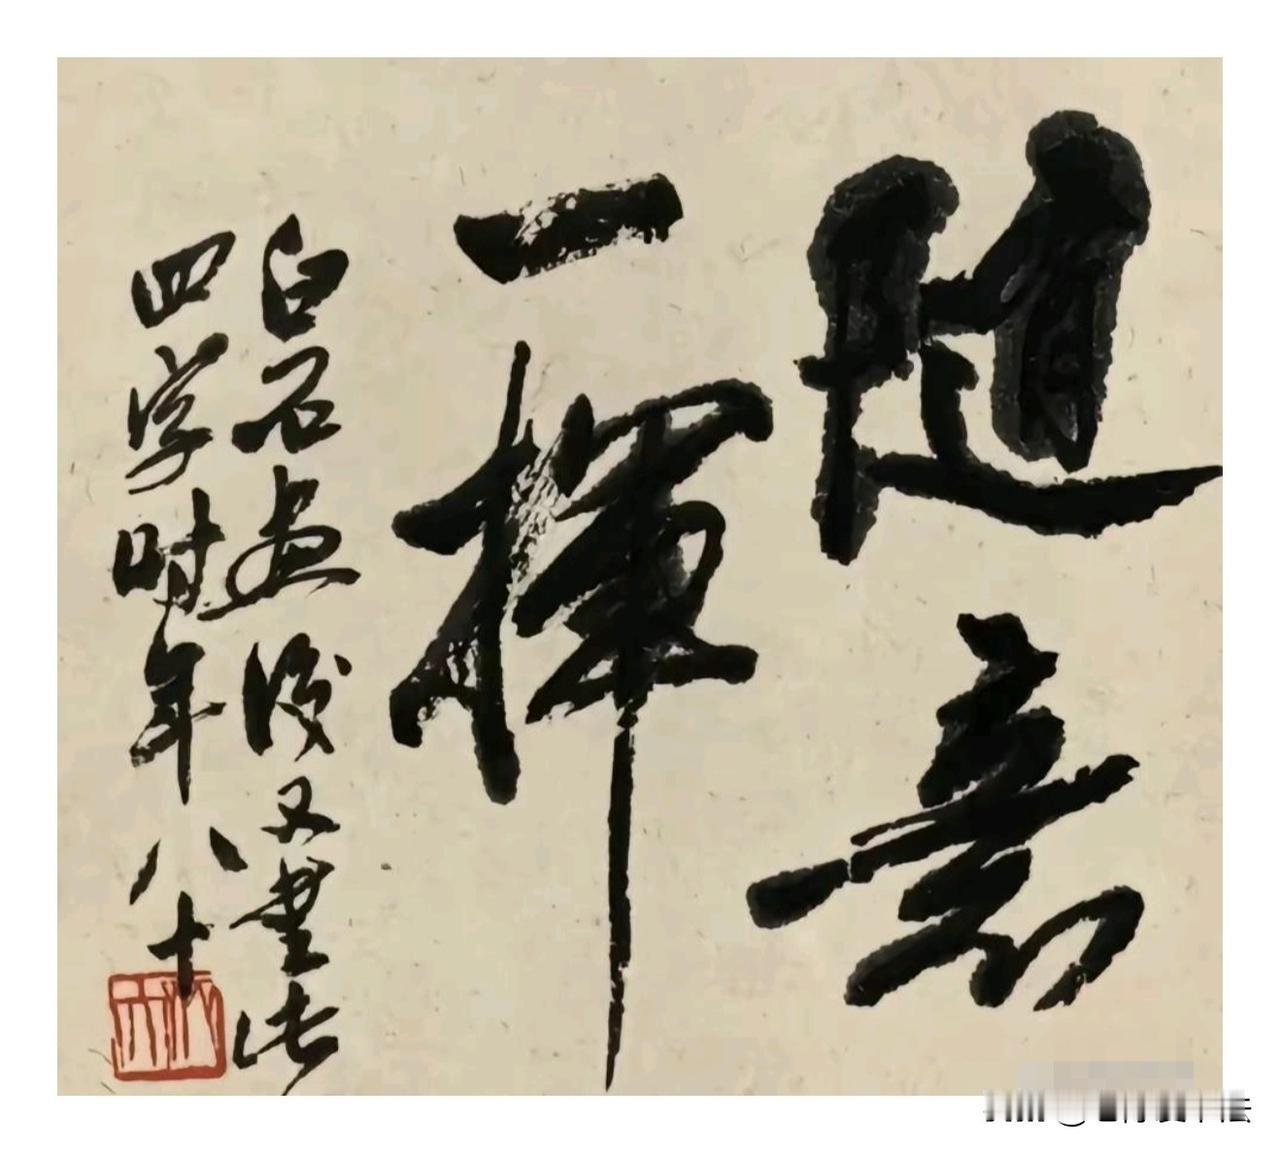 随意
一挥
白石画后又书此
四字时年八十